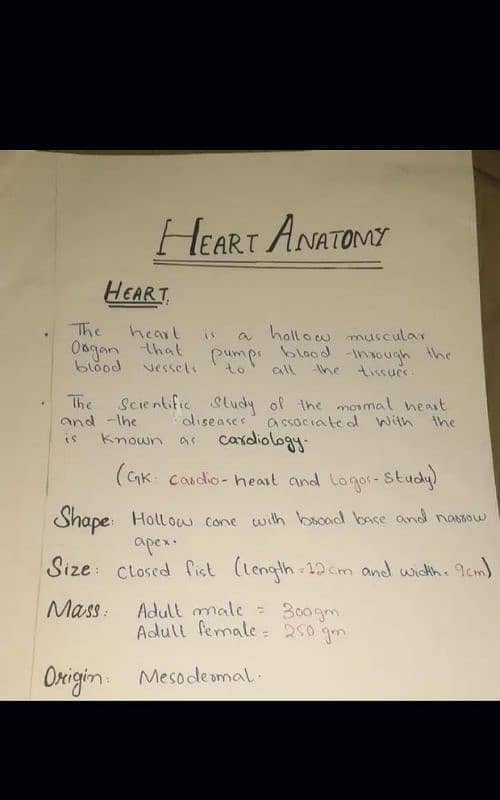 HEART ANATOMY
HEART.
• The heart is a hollow muscular
Organ that pumps blood through the
blood vessels to all the tissues.
• The Scientific Study of the normal heart
and the diseases associated with the
is known as cardiology.
(GK: Cardio - heart and Logos - Study)
Shape: Hollow cone with broad base and narrow
apex.
Size: Closed fist (length = 12 cm and width = 9cm)
Mass: Adult male = 300gm
Adult female = 250 gm
Origin: Mesodermal.